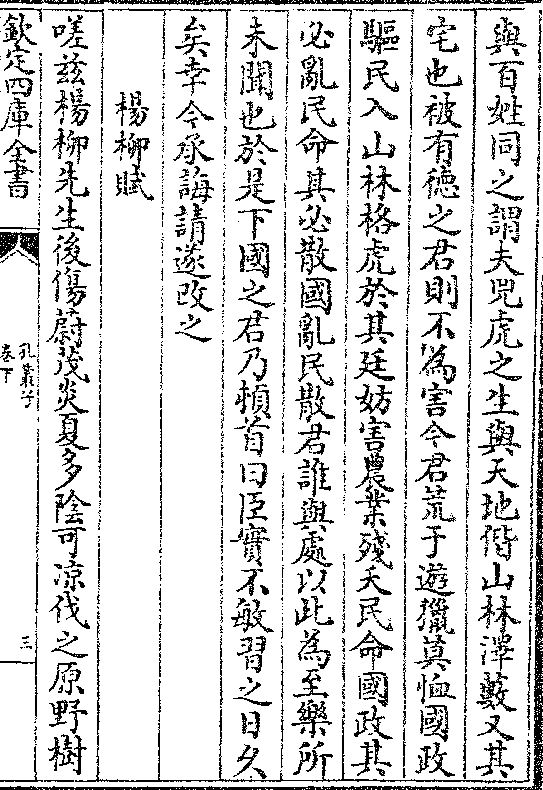 與百姓同之謂夫兕虎之生與天地偕山林澤藪又其
宅也被有德之君則不為害今君荒于遊獵莫恤國政
驅民入山林格虎於其廷妨害農業殘夭民命國政其
必亂民命其必散國亂民散君誰與處以此為至樂所
未聞也於是下國之君乃頓首曰臣實不敏習之日久
矣幸今承誨請遂改之
楊柳賦
嗟茲楊柳先生後傷蔚茂炎夏多陰可凉伐之原野樹
欽定四庫全書
孔叢子
卷下
三